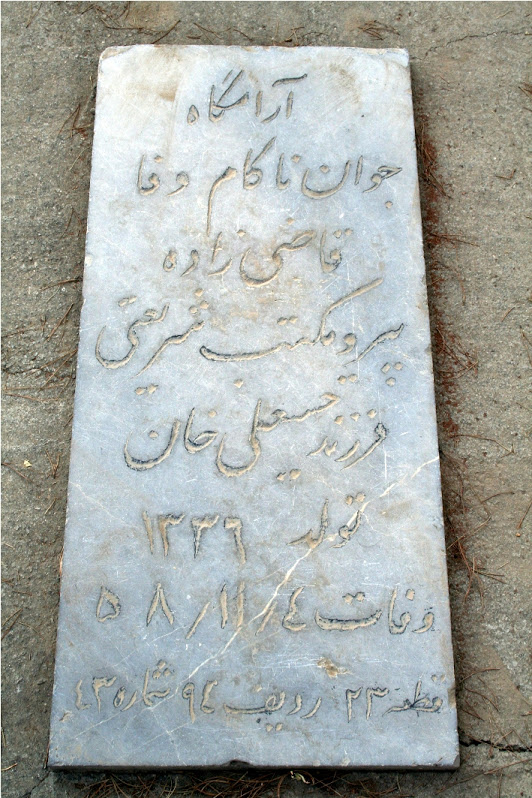 آرامگاه
جوان ناکام وفا
قاضی زاده
پیرو مکتب شریعتی
فرزند حسینعلی خان
تولد ۱۳۳۶
وفات ٤ / ۱۱ / ۵۸
قطعه ۲۳ ردیف ۹٤ شماره ٤۳